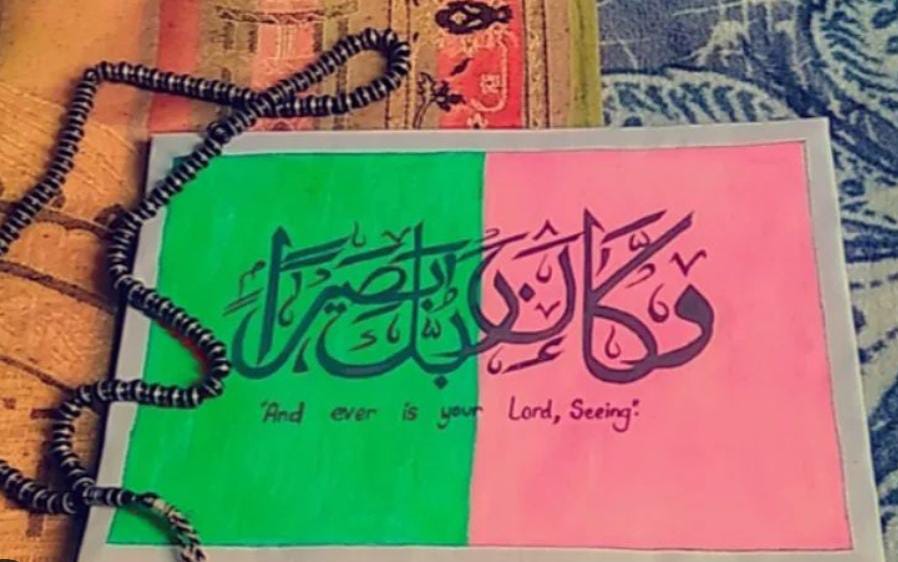 وكان ربك بصيرًا
"And ever is your Lord, Seeing".